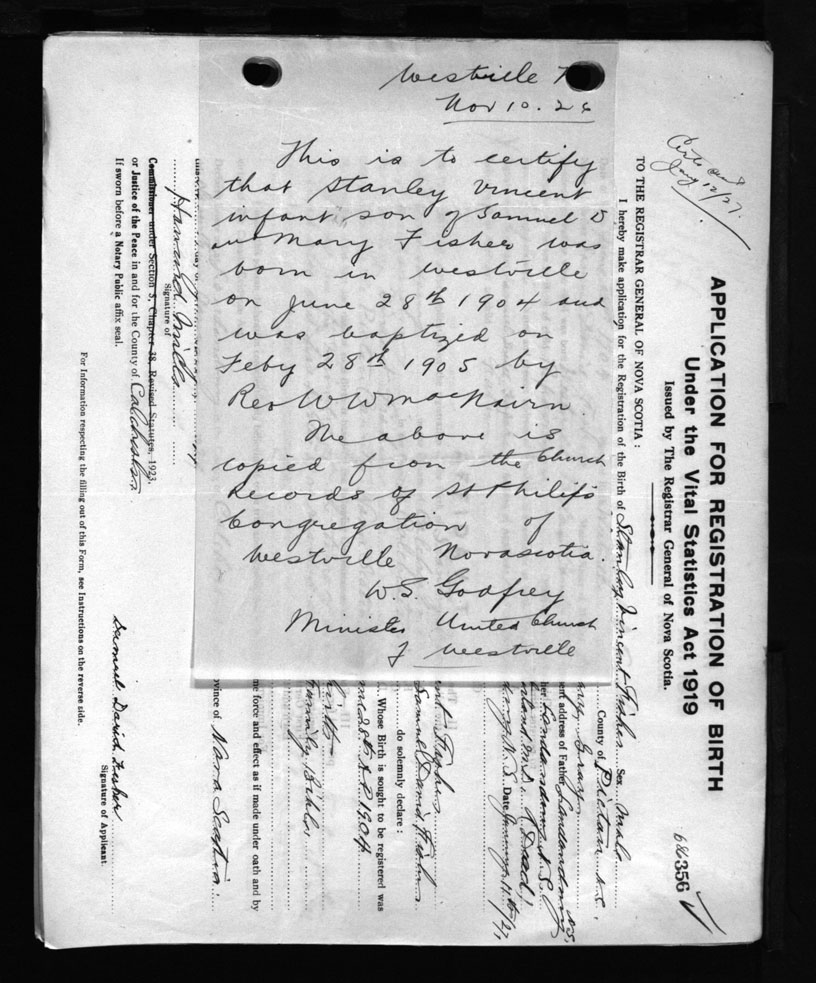 Westville N
Nov 10. 26
This is to certify
that Stanley Vincent
infant son of Samuel D
and Mary Fisher was
born in Westville
on June 28th 1904 and
was baptized on
Feby 28th 1905 by
Rev W W MacNairn.
The above is
copied from the Church
Records of St Philip's
Congregation of
Westville Nova Scotia.
W. S. Godfrey
Minister United Church
of Westville
Jany 12/27.
APPLICATION FOR REGISTRATION OF BIRTH
Under the Vital Statistics Act 1919
Issued by The Registrar General of Nova Scotia.
356
TO THE REGISTRAR GENERAL OF NOVA SCOTIA :
I hereby make application for the Registration of the Birth of Stanley Vincent Fisher Sex Male
County of Pictou N.S,
Gray
ent address of Father Londonderry N.S,
N. S.
Dead
N. S. Date January 11th/27,
Fisher
Samuel David Fisher
do solemnly declare :
Whose Birth is sought to be registered was
28th A.D. 1904
births
Family Bible
me force and effect as if made under oath and by
ovince of Nova Scotia
Harold Mills
Signature of
Commissioner under Section 5, Chapter 38, Revised Statutes, 1923.
or Justice of the Peace in and for the County of Colchester
If sworn before a Notary Public affix seal.
Samuel David Fisher
Signature of Applicant.
For Information respecting the filling out of this Form, see Instructions on the reverse side.